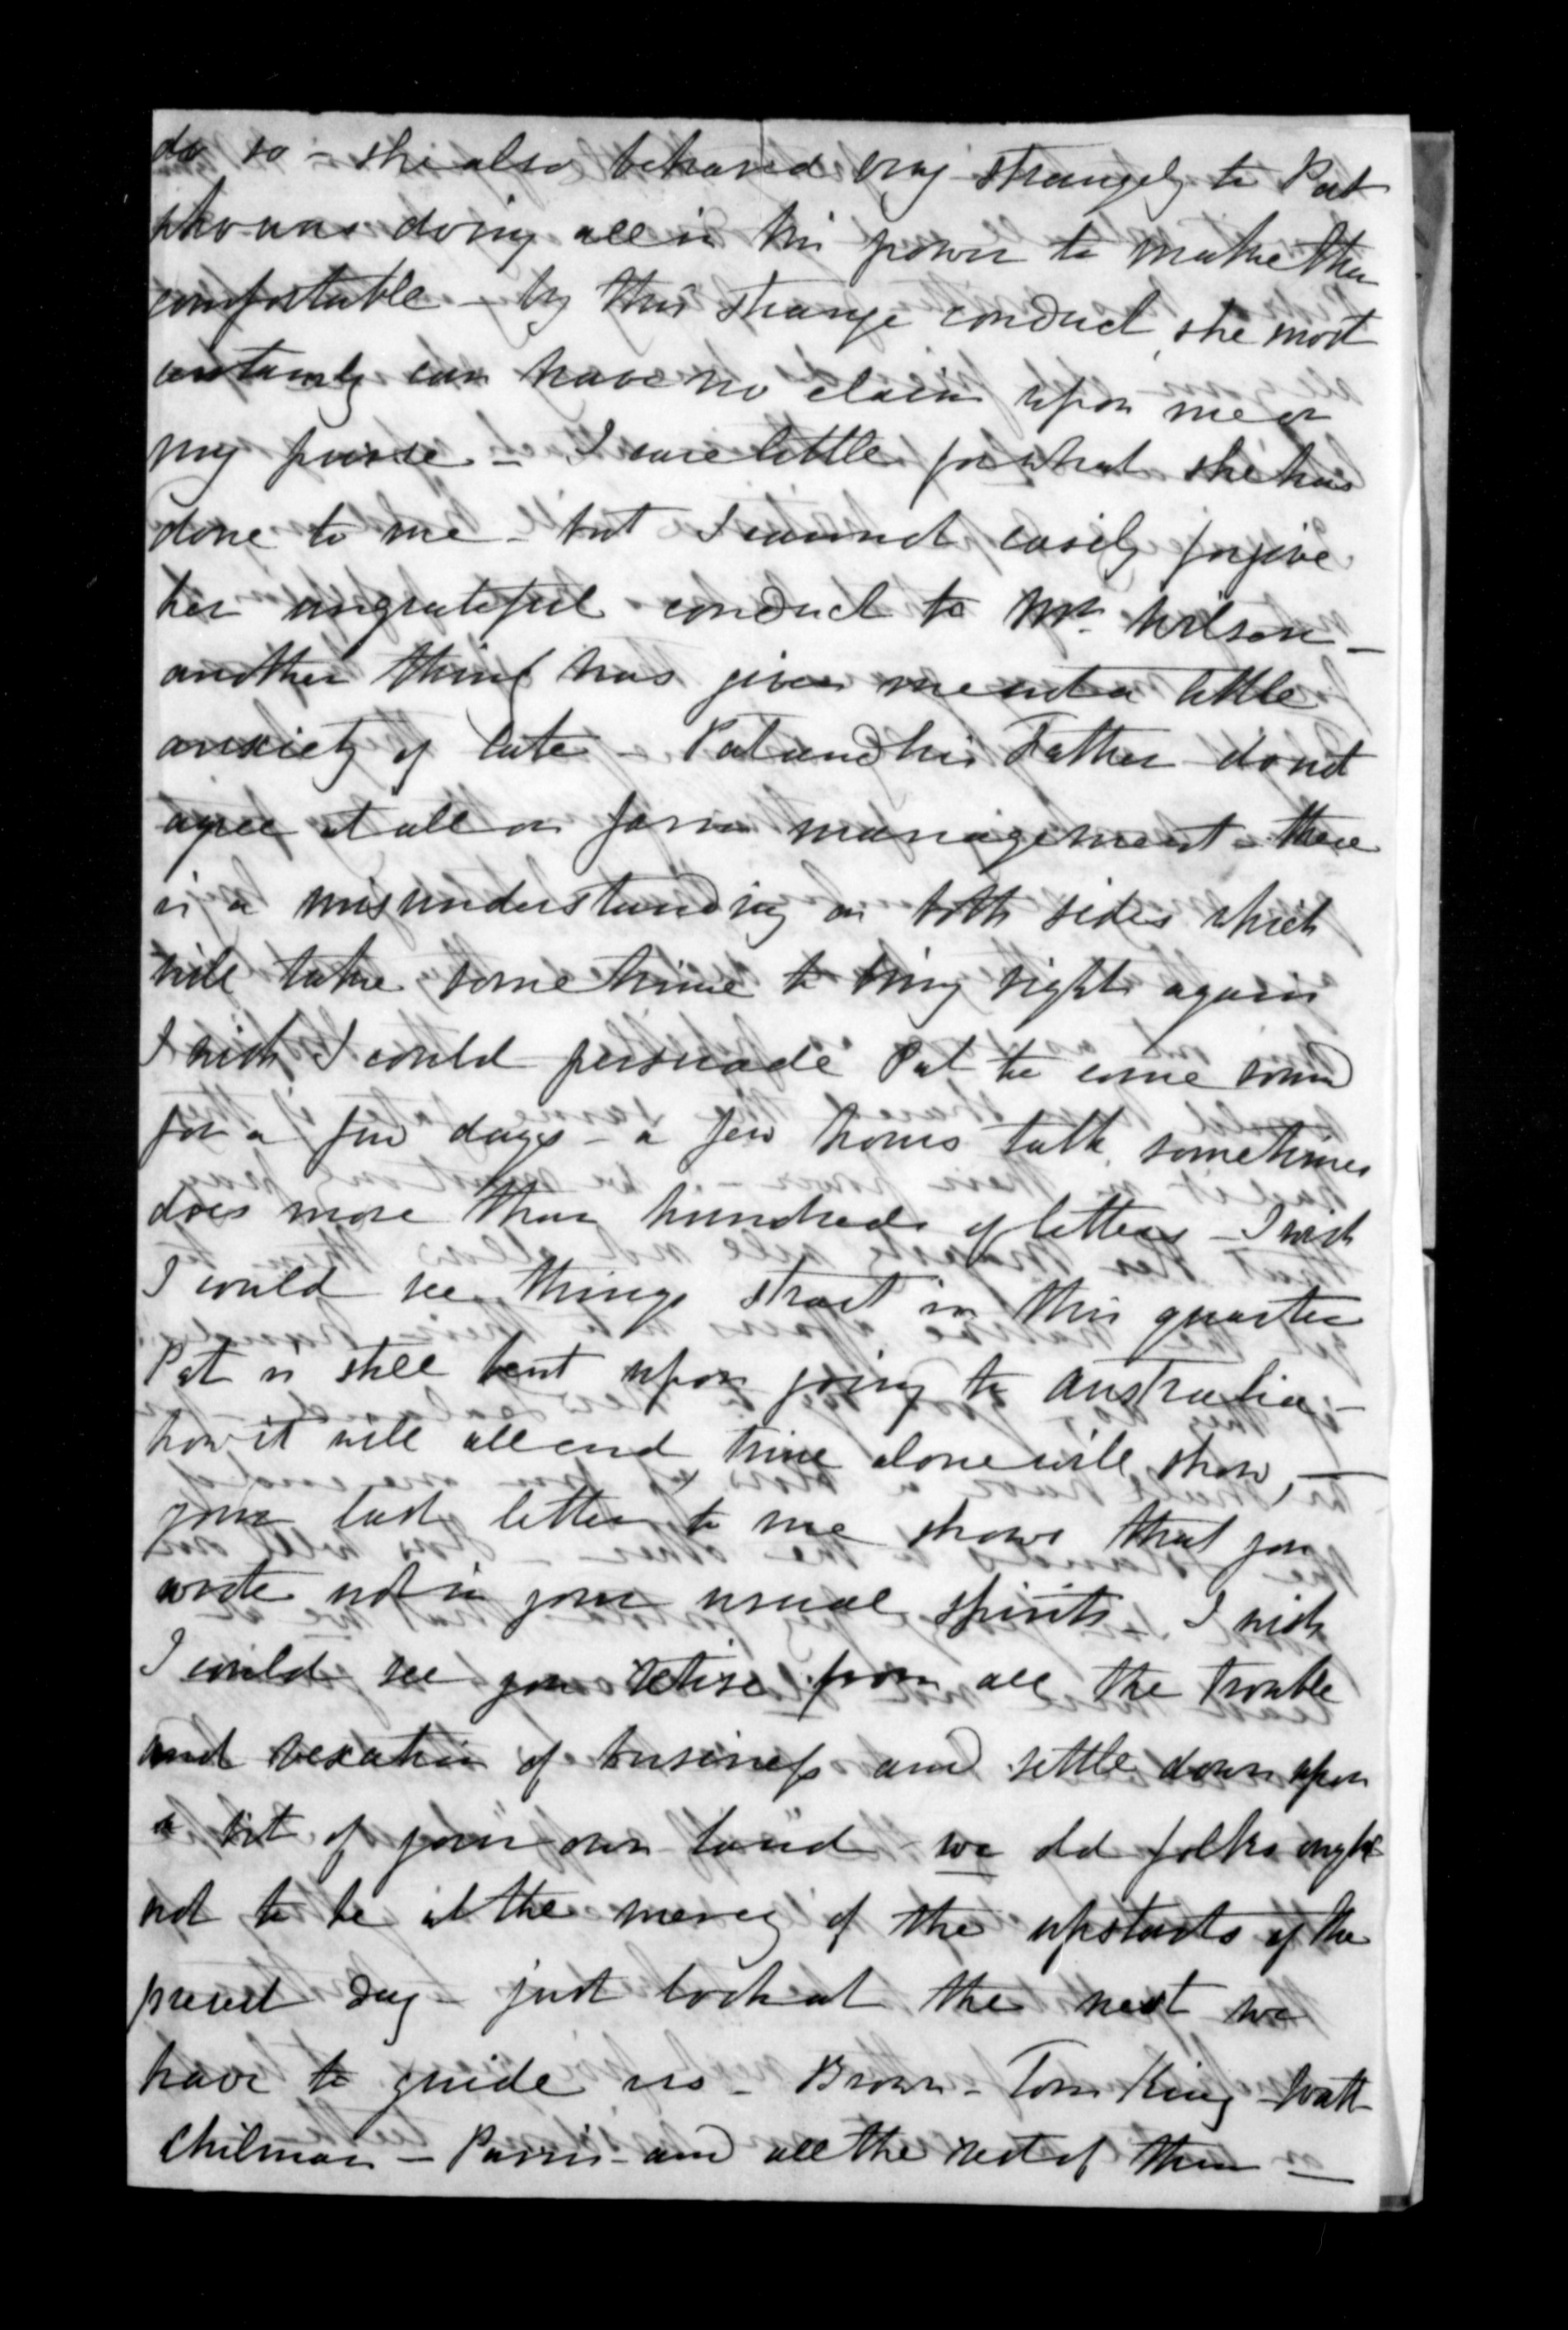 do so - she also behaved very strangely to Pat
who was doing all in his power to make them
comfortable - by this strange conduct she most
certainly can have no claim upon me or
my purse - I care little for what she has
done to me - but I cannot easily forgive
her ungrateful conduct to Mrs. Wilson -
another thing has given me not a little
anxiety of late - Pat and his Father do not
agree at all on farm management - there
is a misunderstanding on both sides which
will take some time to bring right again
I wish I could persuade Pat to come round
for a few days - a few hours talk sometimes
does more than hundreds of letters - I wish
I could see things strait in this quarter
Pat is still bent upon going to Australia -
how it will all end time alone will show, -
your last letter to me shows that you
wrote not in your usual spirits - I wish
I could see you retire from all the trouble
and vexation of business and settle down upon
a bit of your own land - we old folks ought
not to be at the mercy of the upstarts of the
present day - just look at the nest we
have to guide us - Brown - Tom King - Watt
Chilman - Parris - and all the rest of them -